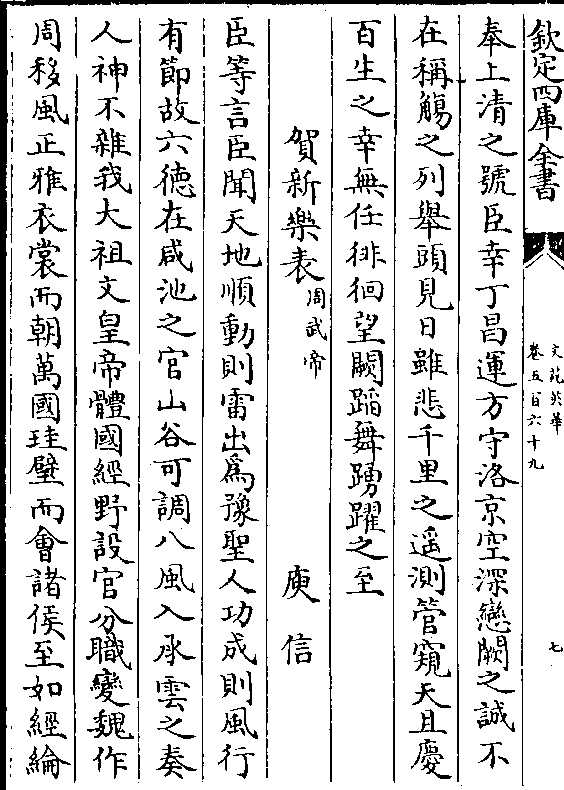 欽定四庫全書
文苑英華
卷五百六十九
七
奉上清之號臣幸丁昌運方守洛京空深戀闕之誠不
在稱觴之列舉頭見日雖悲千里之遥測管窺天且慶
百生之幸無任徘徊望闕蹈舞踴躍之至
賀新樂表周武帝 庾信
臣等言臣聞天地順動則雷出為豫聖人功成則風行
有節故六德在咸池之官山谷可調八風入承雲之奏
人神不雜我大祖文皇帝體國經野設官分職變魏作
周移風正雅衣裳而朝萬國珪璧而會諸侯至如經綸